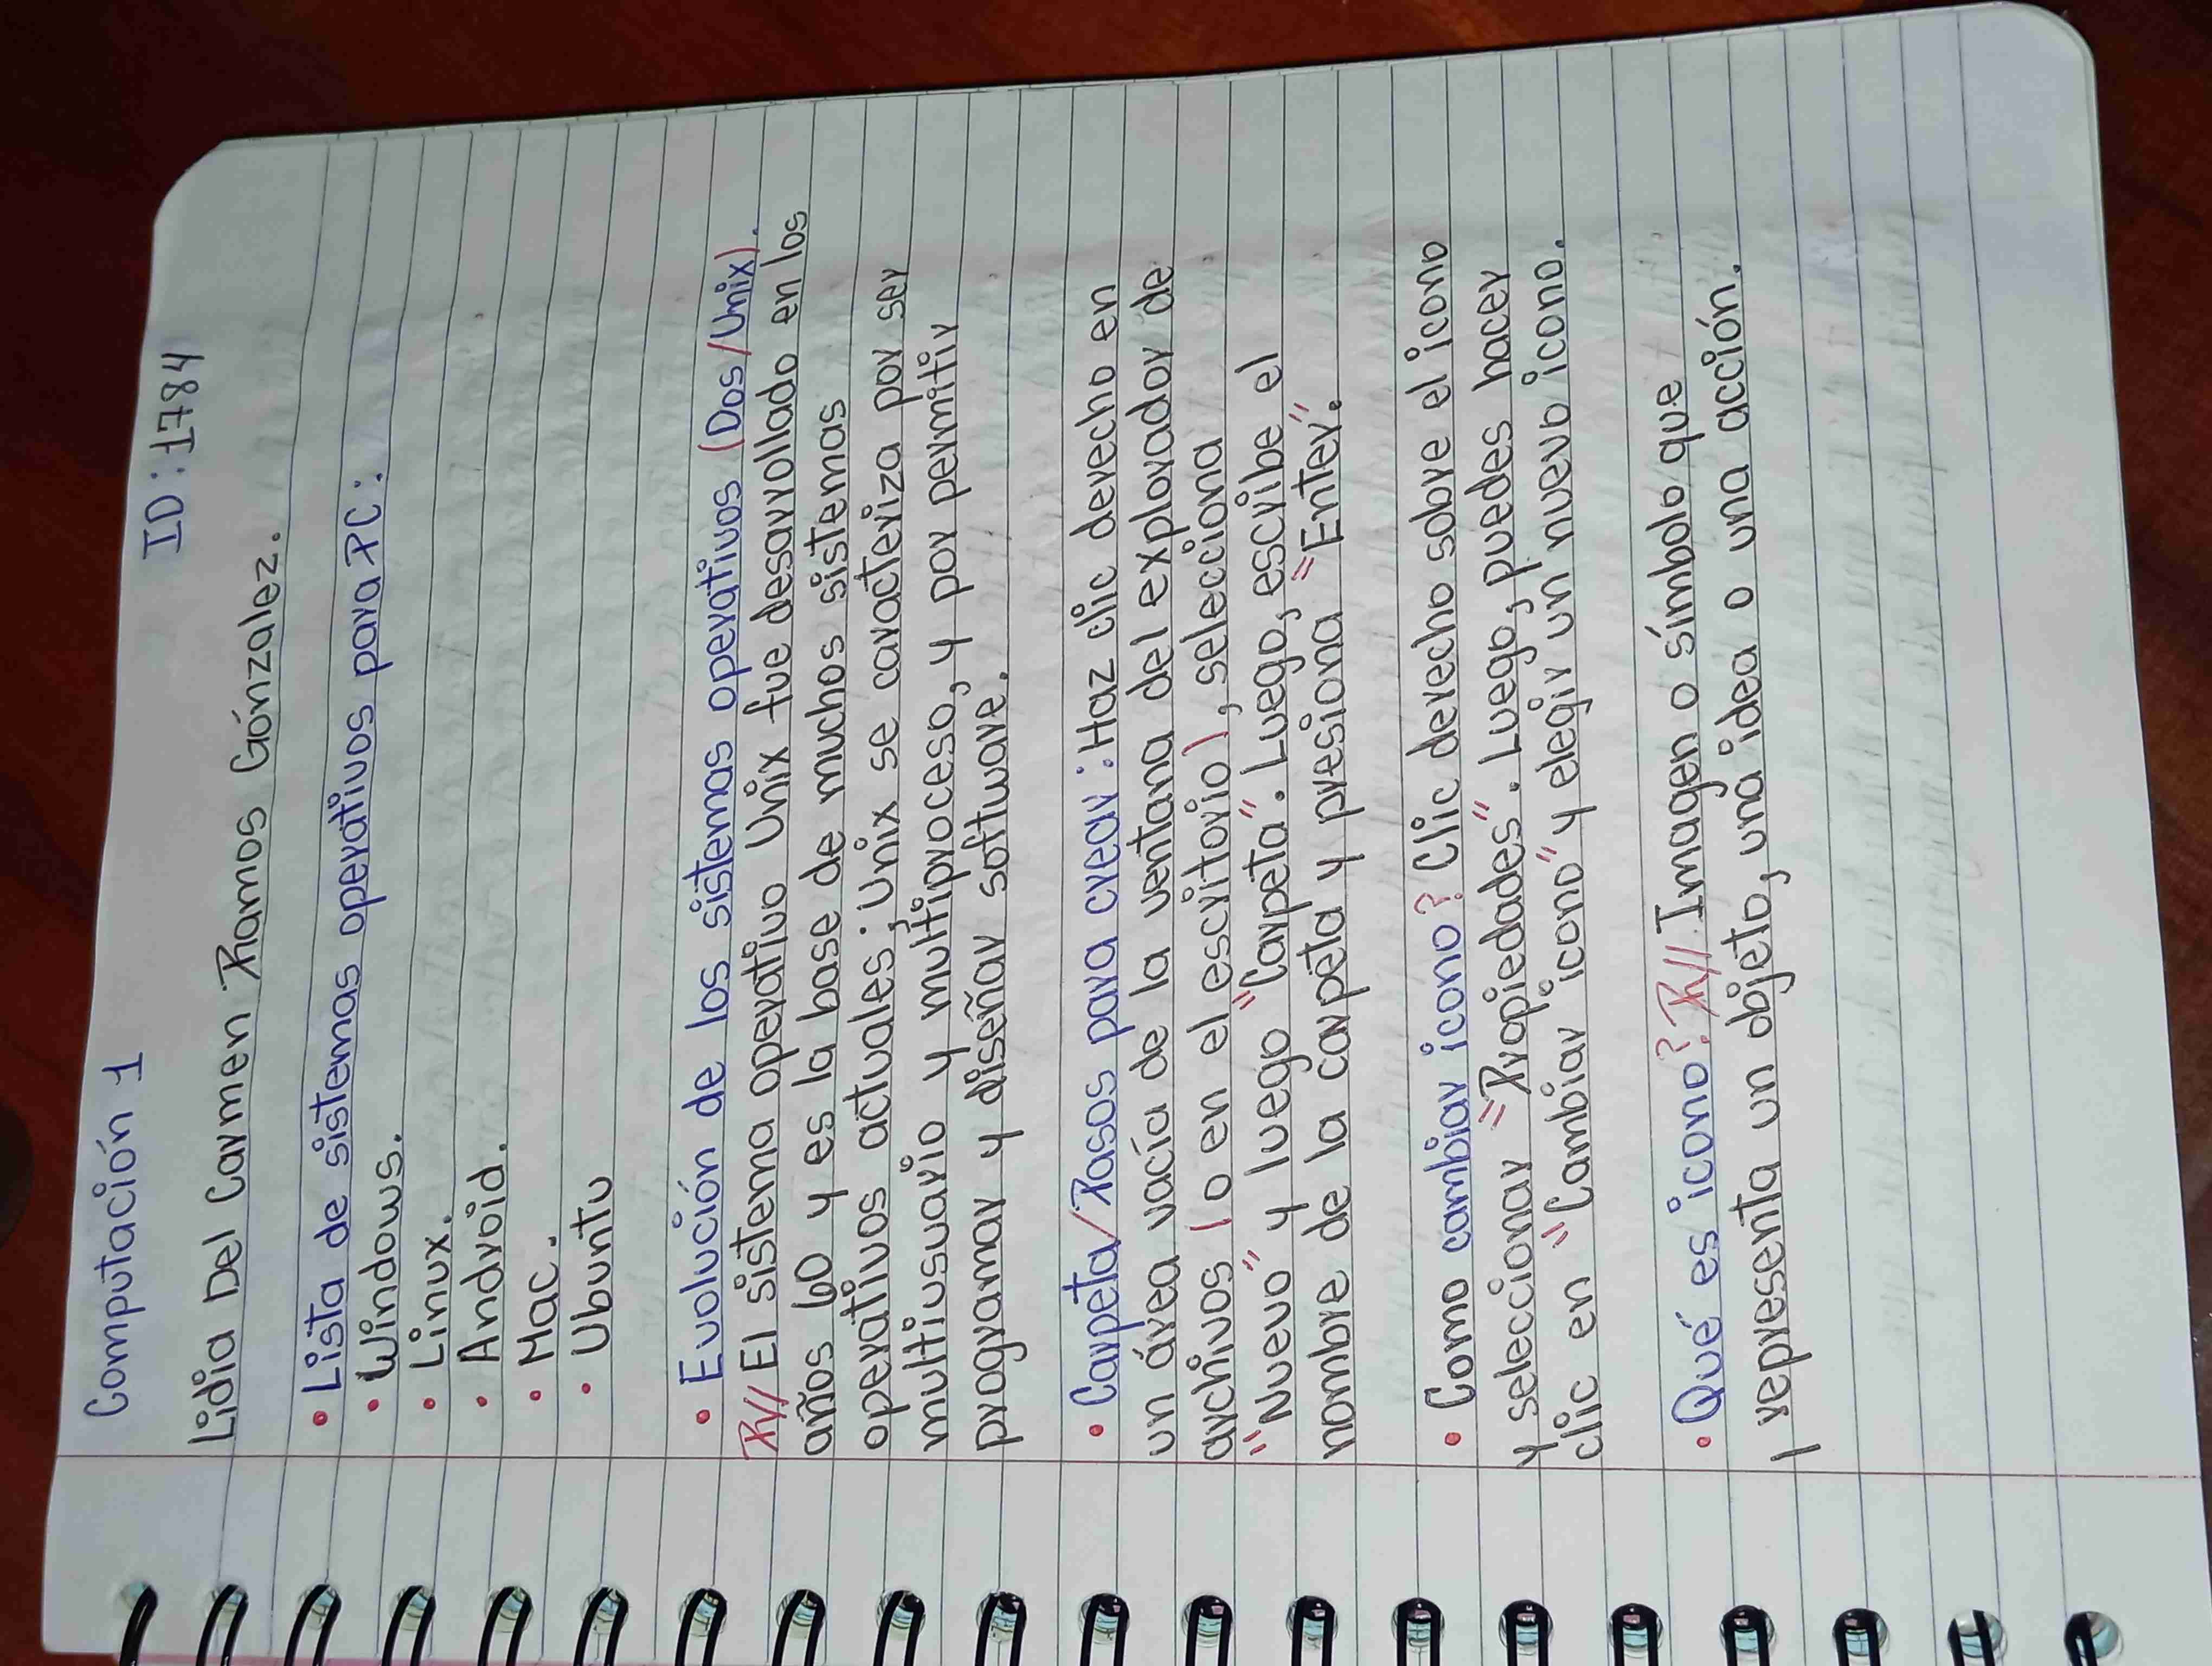 Computación 1 ID: 1784
Lidia Del Carmen Ramos Gónzalez.
• Lista de sistemas operativos para PC:
• Windows.
• Linux.
• Android.
• Mac.
• Ubuntu
• Evolución de los sistemas operativos (Dos/Unix).
R// El sistema operativo Unix fue desarrollado en los
años 60 y es la base de muchos sistemas
operativos actuales; Unix se caracteriza por ser
multiusuario y multiproceso, y por permitir
programar y diseñar software.
• Carpeta/Pasos para crear: Haz clic derecho en
un área vacía de la ventana del explorador de
archivos (o en el escritorio), selecciona
"Nuevo" y luego "Carpeta". Luego, escribe el
nombre de la carpeta y presiona "Enter".
• Como cambiar icono? Clic derecho sobre el icono
y seleccionar "Propiedades". Luego, puedes hacer
clic en "Cambiar icono" y elegir un nuevo icono.
• Qué es icono? R// Imagen o símbolo que
representa un objeto, una idea o una acción.